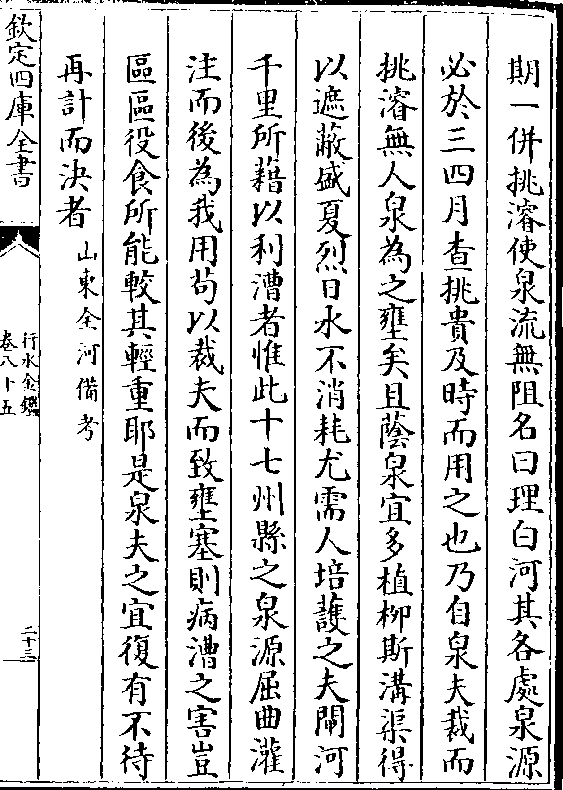 期一併挑濬使泉流無阻名曰理白河其各處泉源
必於三四月查挑貴及時而用之也乃自泉夫裁而
挑濬無人泉為之壅矣且蔭泉宜多植柳斯溝渠得
以遮蔽盛夏烈日水不消耗尤需人培護之夫閘河
千里所藉以利漕者惟此十七州縣之泉源屈曲灌
注而後為我用茍以裁夫而致壅塞則病漕之害豈
區區役食所能較其輕重耶是泉夫之宜復有不待
再計而決者山東全河備考
欽定四庫全書
行水金鑑
卷八十五
二十三